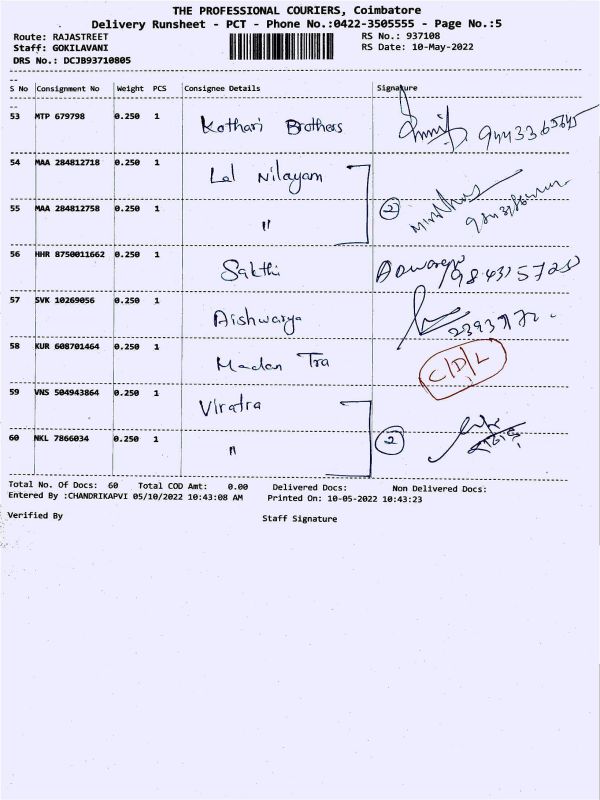 THE PROFESSIONAL COURIERS, Coimbatore
Delivery Runsheet - PCT - Phone No.:0422-3505555 - Page No.:5
Route: RAJASTREET RS No.: 937108
Staff: GOKILAVANI RS Date: 10-May-2022
DRS No.: DCJB93710805
S No Consignment No Weight PCS Consignee Details Signature
53 MTP 679798 0.250 1 Kothari Brothers
54 MAA 284812718 0.250 1 Lal Nilayam
55 MAA 284812758 0.250 1 " 2
56 HHR 8750011662 0.250 1 Sakthi
57 SVK 10269056 0.250 1 Aishwarya
58 KUR 608701464 0.250 1 Madan Tra C/D/L
59 VNS 504943864 0.250 1 Viratra
60 NKL 7866034 0.250 1 " 2
Total No. Of Docs: 60 Total COD Amt: 0.00 Delivered Docs: Non Delivered Docs:
Entered By :CHANDRIKAPVI 05/10/2022 10:43:08 AM Printed On: 10-05-2022 10:43:23
Verified By Staff Signature